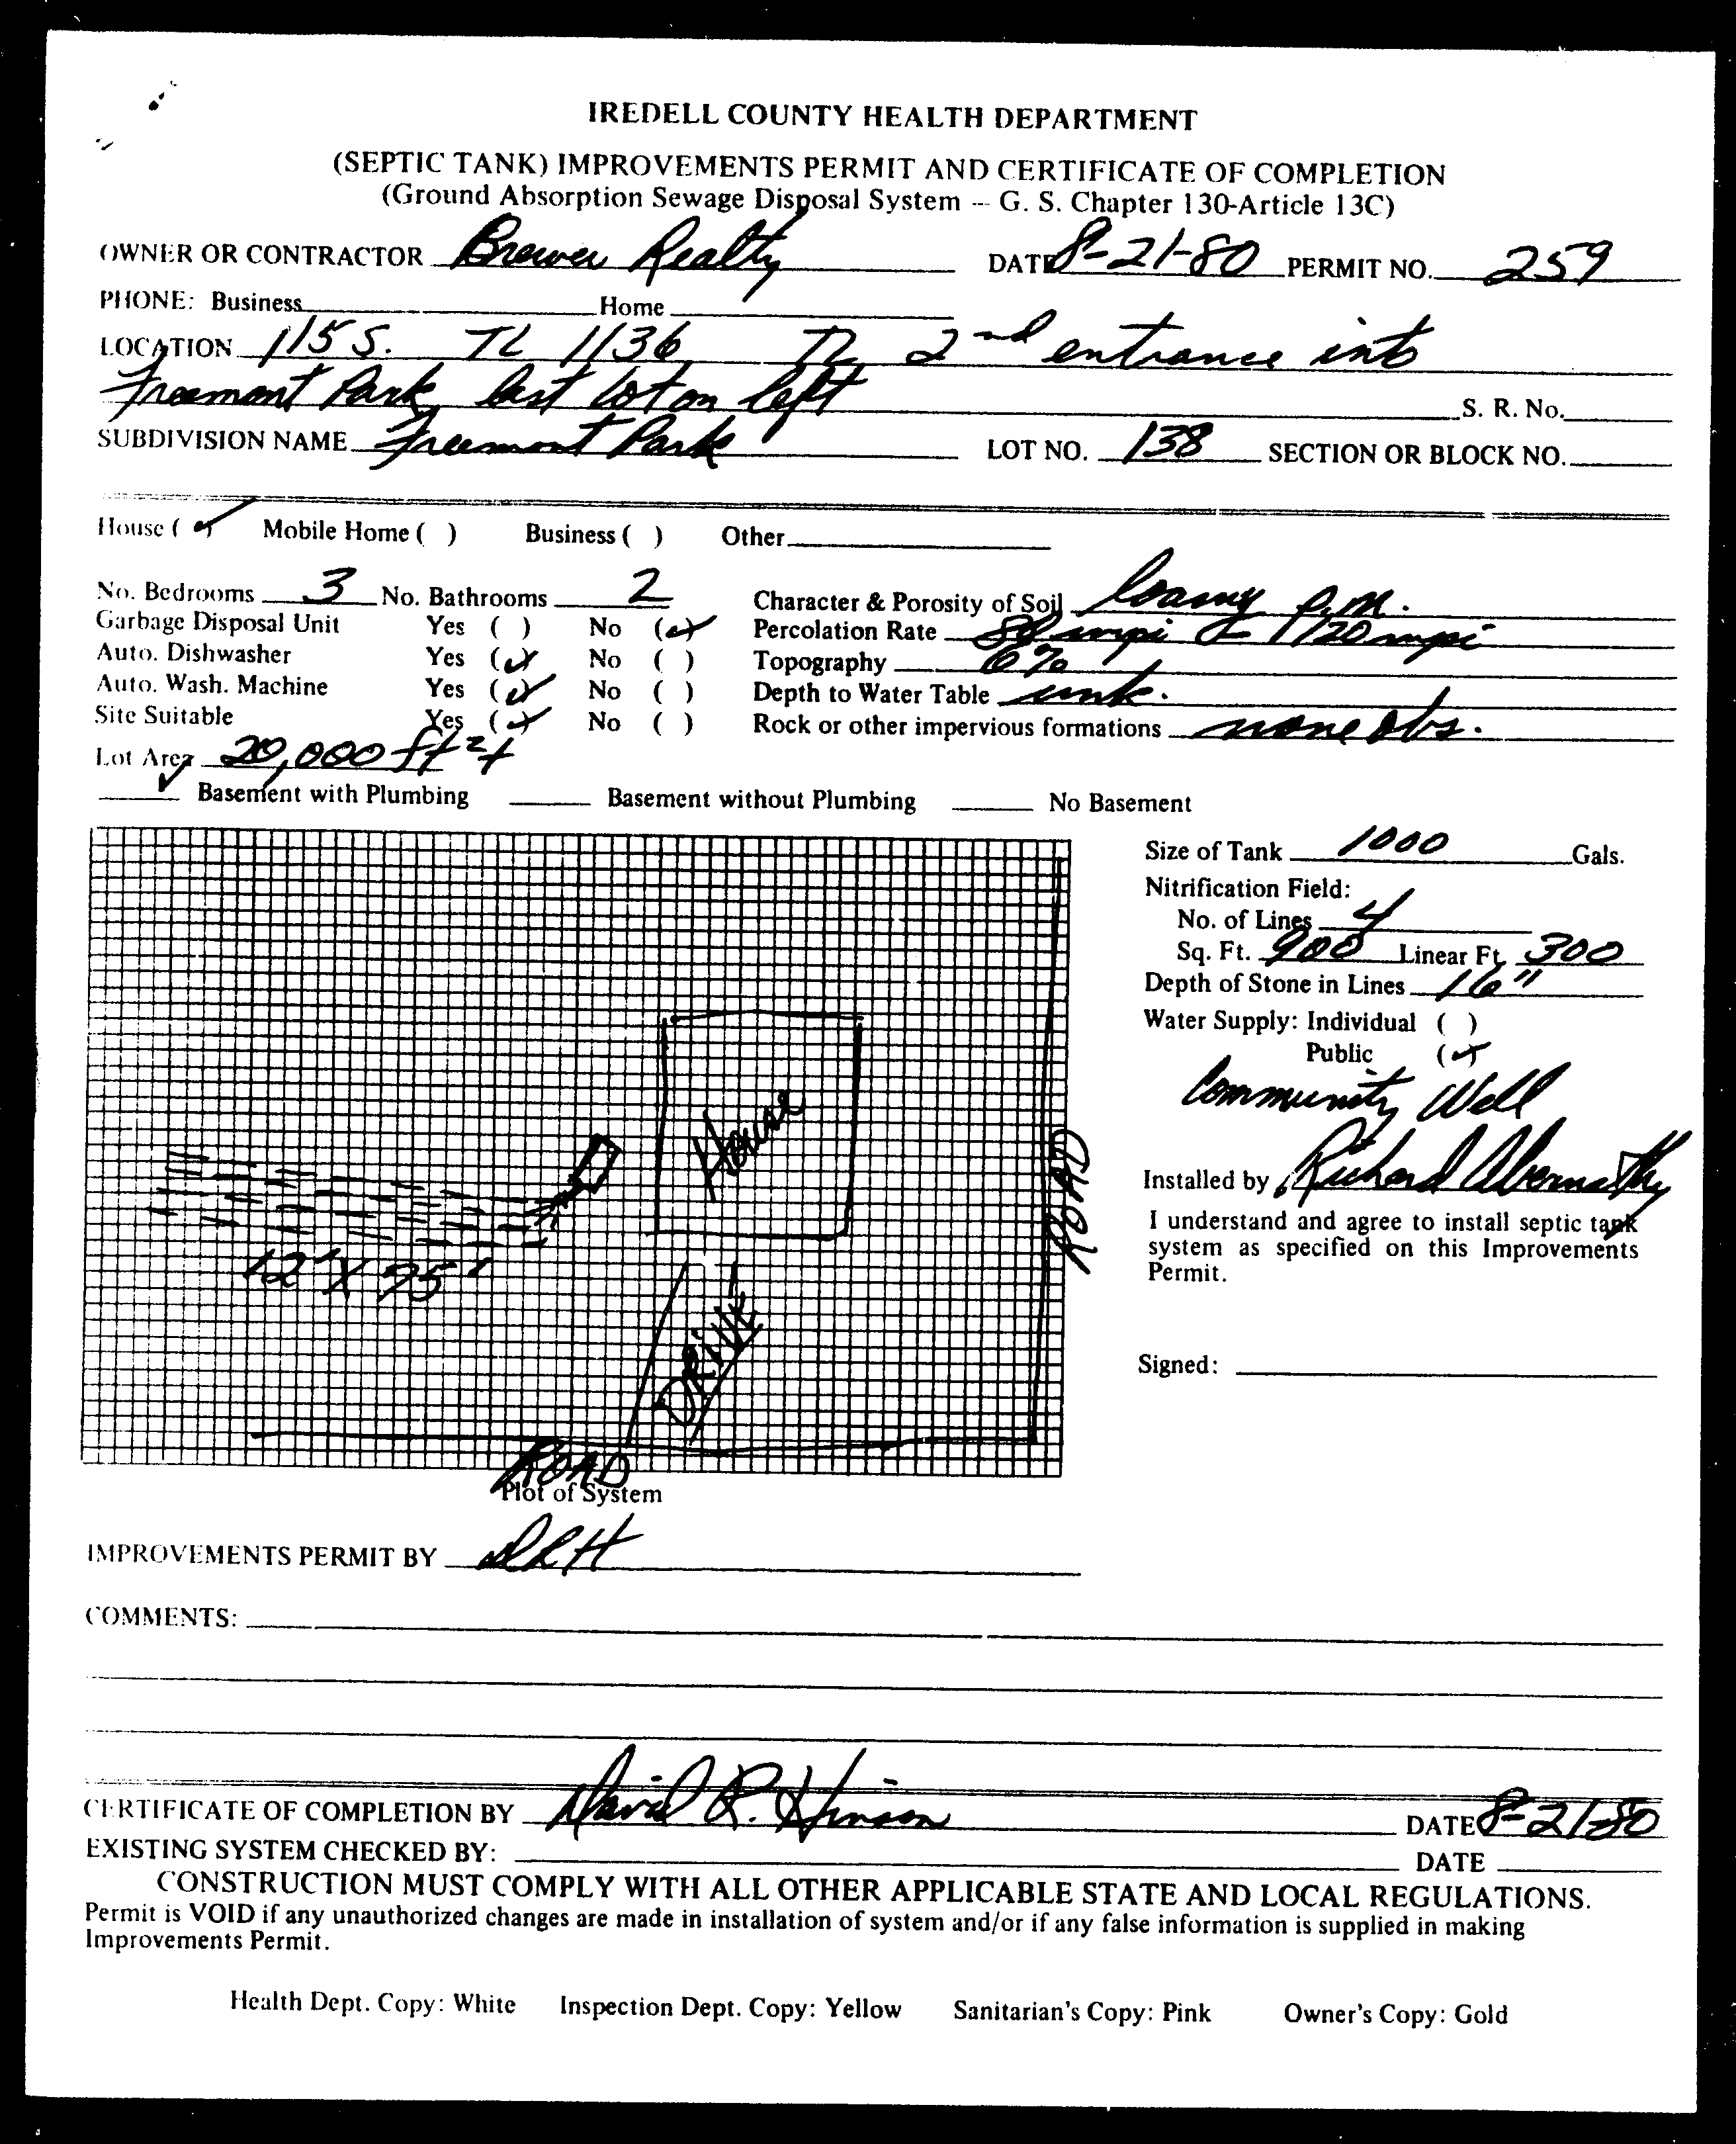 IREDELL COUNTY HEALTH DEPARTMENT
(SEPTIC TANK) IMPROVEMENTS PERMIT AND CERTIFICATE OF COMPLETION
(Ground Absorption Sewage Disposal System -- G. S. Chapter 130-Article 13C)
OWNER OR CONTRACTOR Brewer Realty DATE 8-21-80 PERMIT NO. 259
PHONE: Business Home
LOCATION 115 S. TL 1136 TL 2nd entrance into
Freemont Park, last lot on left S. R. No.
SUBDIVISION NAME Freemont Park LOT NO. 138 SECTION OR BLOCK NO.
House (✓) Mobile Home ( ) Business ( ) Other
No. Bedrooms 3 No. Bathrooms 2 Character & Porosity of Soil loamy p.m.
Garbage Disposal Unit Yes ( ) No (✓) Percolation Rate mpi 1120 mpi
Auto. Dishwasher Yes (✓) No ( ) Topography 6%
Auto. Wash. Machine Yes (✓) No ( ) Depth to Water Table unk.
Site Suitable Yes (✓) No ( ) Rock or other impervious formations none obs.
Lot Area 20,000 ft² +
✓ Basement with Plumbing Basement without Plumbing No Basement
Size of Tank 1000 Gals.
Nitrification Field:
No. of Lines 4
Sq. Ft. 900 Linear Ft. 300
Depth of Stone in Lines 16"
Water Supply: Individual ( )
Public (✓)
Community Well
Installed by Richard Abernathy
I understand and agree to install septic tank
system as specified on this Improvements
Permit.
Signed:
House
ROAD
12" X 75'
DRIVE
ROAD
Plot of System
IMPROVEMENTS PERMIT BY DRH
COMMENTS:
CERTIFICATE OF COMPLETION BY David R. Hinson DATE 8-21-80
EXISTING SYSTEM CHECKED BY: DATE
CONSTRUCTION MUST COMPLY WITH ALL OTHER APPLICABLE STATE AND LOCAL REGULATIONS.
Permit is VOID if any unauthorized changes are made in installation of system and/or if any false information is supplied in making
Improvements Permit.
Health Dept. Copy: White Inspection Dept. Copy: Yellow Sanitarian's Copy: Pink Owner's Copy: Gold